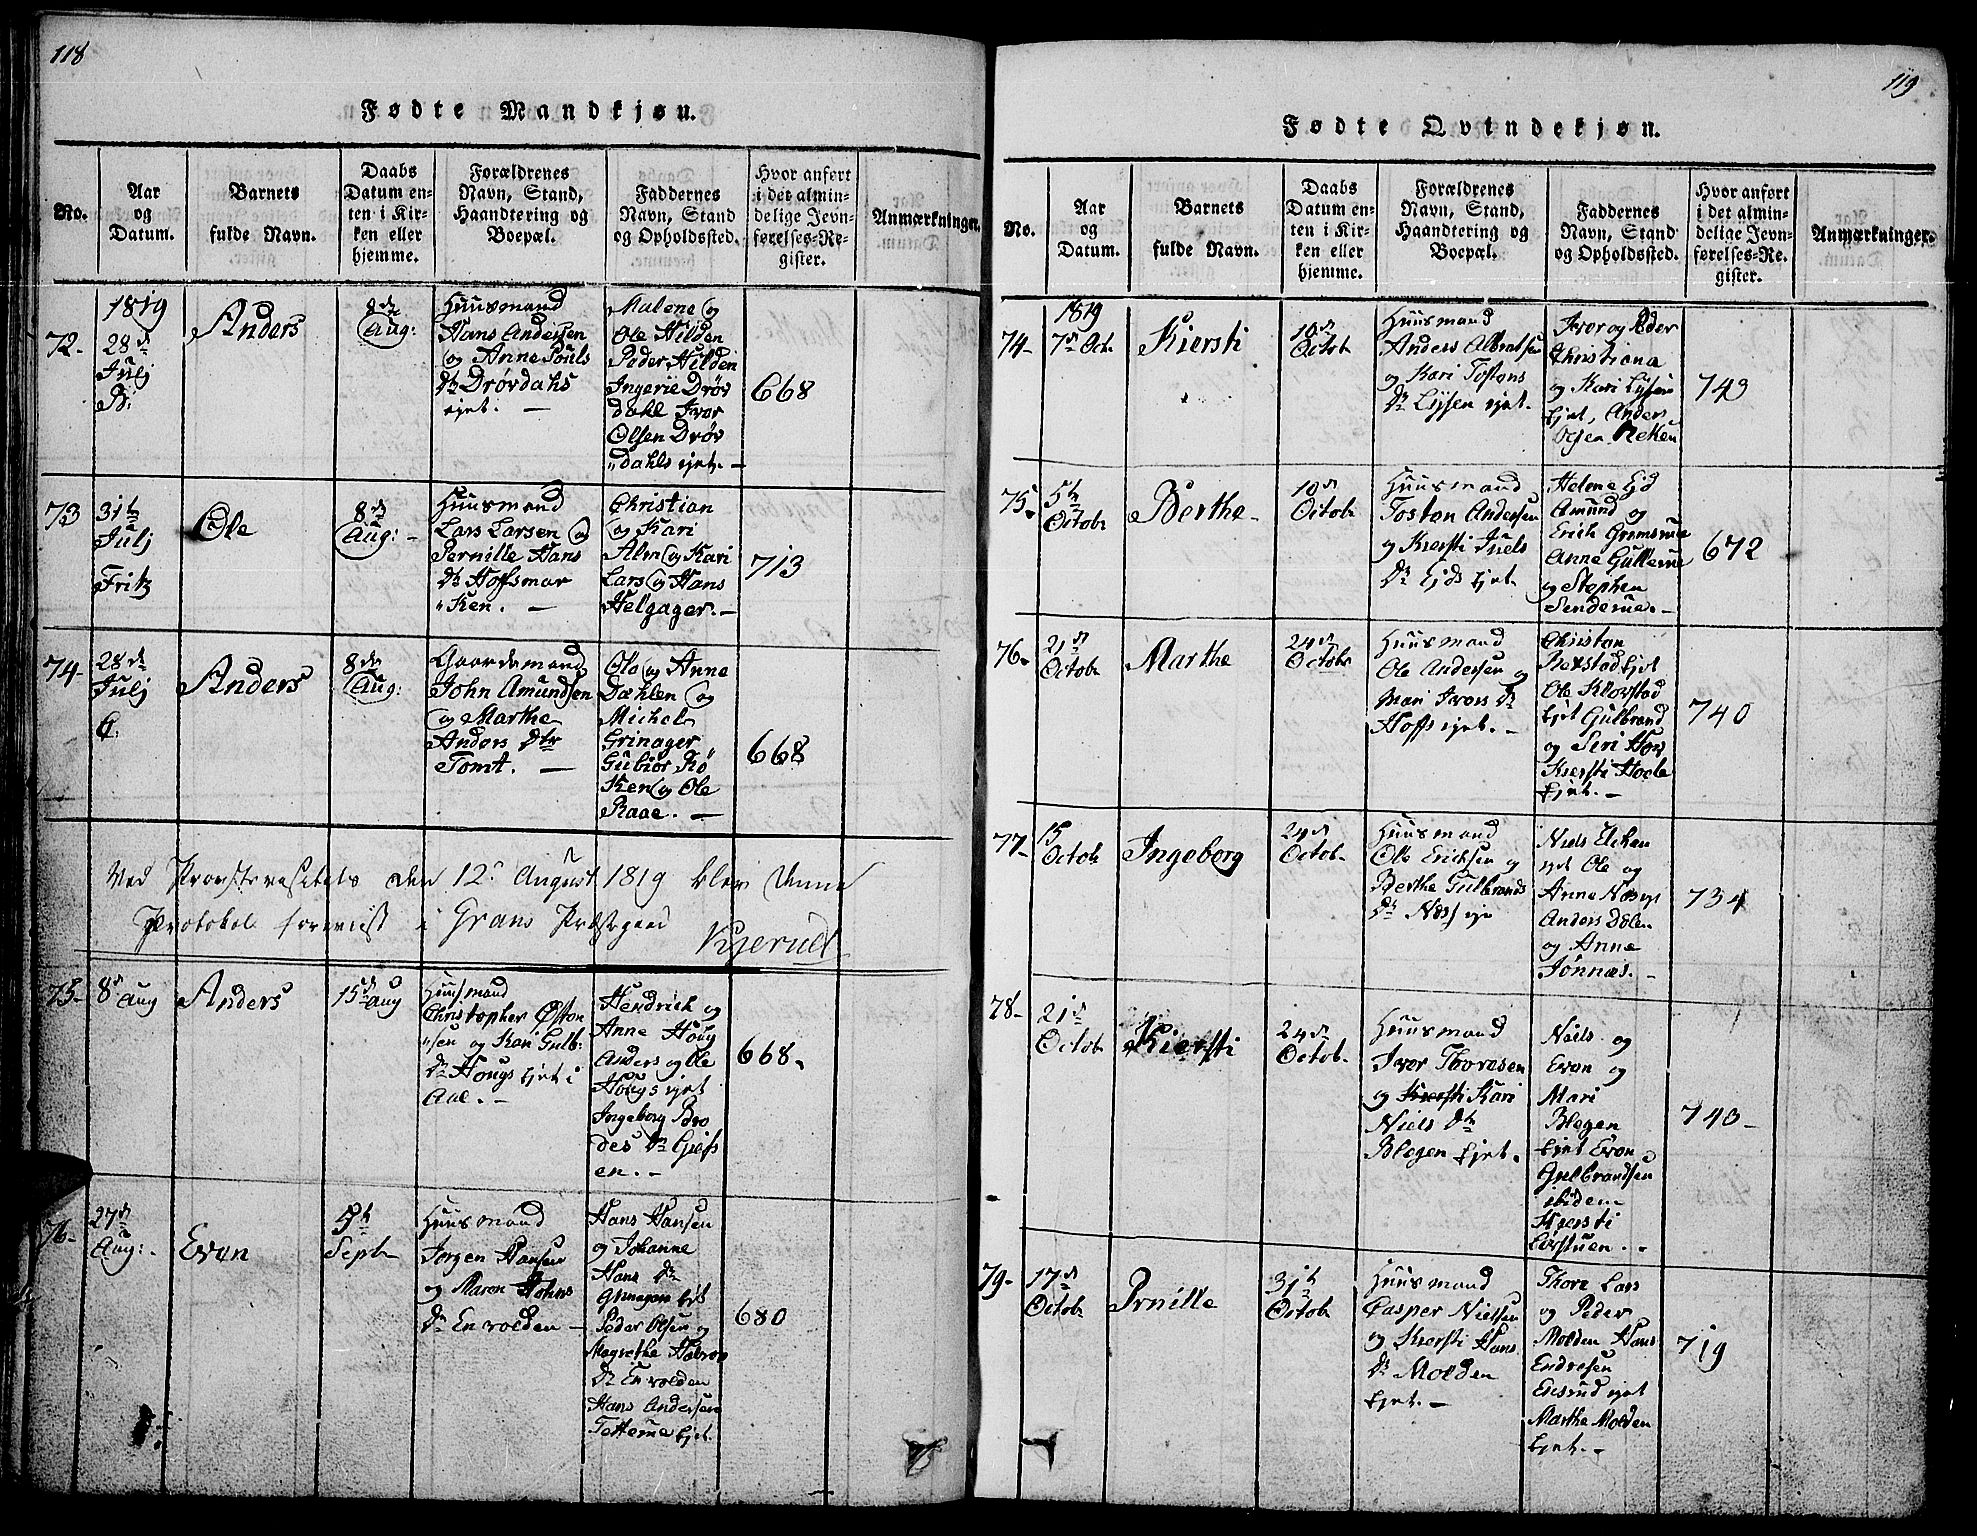 118
Fødte Mandkjøn.
No.
Aar
og
Datum.
Barnets
fulde Navn.
Daabs
Datum en-
ten i Kir-
ken eller
hjemme.
Forældrenes
Navn, Stand,
Haandtering og
Boepæl.
Faddernes
Navn, Stand
og Opholdssted.
Hvor anført
i det almin-
delige Jevn-
førelses-Re-
gister.
Anmærkninger.
72-
1819
28de
Julj
Anders
8de
Aug:
Huusmand
Hans Andersen
og Anne Pouls
Dr Drövdahs
ejet. -
Malene og
Ole Hilden
Peder Hilden
Ingerie Dröv
dahl Ivor
Olsen Dröv
"dahls ejet. -
668
73
31te
Julj
Fritz
Ole
8de
Aug: -
Huusmand
Lars Larsen og
Pernille Hans
Dr Hoffsmar
"ken. -
Christian
og Kari
Alm og Kari
Lars og Hans
Helgager. -
713
74-
28de
Julj
Anders
8de
Aug:
Gaardemand
John Amundsen
og Marthe
Anders Dtr
Tomt. -
Ole og Anne
Dæhlen og
Michel
Grinager
Gubior Rö
Ken og Ole
Raae. -
668
Ved Provstevisitats den 12te August 1819 blev denne
Protokol foreviist i Grans Præstegaard
Kjerulf
75-
8de Aug
Anders
15de Aug
Huusmand
Christopher Østen
"sen og Kari Gulb:
Dr Hougs Ejet i
Aal. -
Hendrich og
Anne Houg
Anders og Ole
Hougs ejet
Ingeborg Bro
des Dr
en. -
668.
76-
27de
Aug: -
Evan
5te
Septb
Huusmand
Jörgen Hansen
og Maren Johns
Dr Envolden -
Hans Hansen
og Johanne
Hans Dr
Ejet
Peder Olsen og
Magrethe Halvor
Dr Envolden
Hans Andersen
Ejet.
680
119
Fødte Qvindekjøn.
No.
Aar
og
Datum.
Barnets
fulde Navn.
Daabs
Datum en-
ten i Kir-
ken eller
hjemme.
Forældrenes
Navn, Stand,
Haandtering og
Boepæl.
Faddernes
Navn, Stand
og Opholdssted.
Hvor anført
i det almin-
delige Jevn-
førelses-Re-
gister.
Anmærkninger.
74-
1819
7de Oct.
Kiersti
10de
Octob
Huusmand
Anders Albretsen
og Kari Tostens
Dr Lysen ejet.
Ivor og Peder
Christiana
og Kari Lysen
Ejet, Anders
Neken
743
75.
5te
Octob
Berthe
10de
Octob
Huusmand
Tosten Andersen
og Kiersti Juels
Dr Ejds Ejet.
Helene Ejd
Amund og
Erich Grimsrue
Anne Gullerue
og Stephen
Senderue. -
672
76.
21de
Octob
Marthe
24de
Octob
Huusmand
Ole Andersen og
Mari Ivers Dr
Hoffs ejet. -
Christen
Ejet
Ole Klovstad
Ejet Gulbrand
og Siri Hoes
Kiersti Hoele
Ejet. -
740
77-
15
Octob
Ingeborg
24de
Octob
Huusmand
Ole Erichsen og
Berthe Gulbrands
Dr Næss eje
Niels Elken
ejet Ole og
Anne Næss
Anders Dælen
og Anne
Jönnæs. -
734
78-
21de
Octob
Kiersti
24de
Octob
Huusmand
Ivor Thoresen
og Kiersti Kari
Niels Dtr
Blegen Ejet.
Niels og
Evan og
Mari
Blegen
Ejet Evan
Gulbrandsen
ibidem
Kiersti
740-
79-
17de
Octob
Prnille
31te
Octob
Huusmand
Casper Nielsen
og Kiersti Hans
Dr Molden
Ejet. -
Thore Lars
og Peder
Molden Hans
Endresen
ejet
Marthe Molden
Ejet. -
719